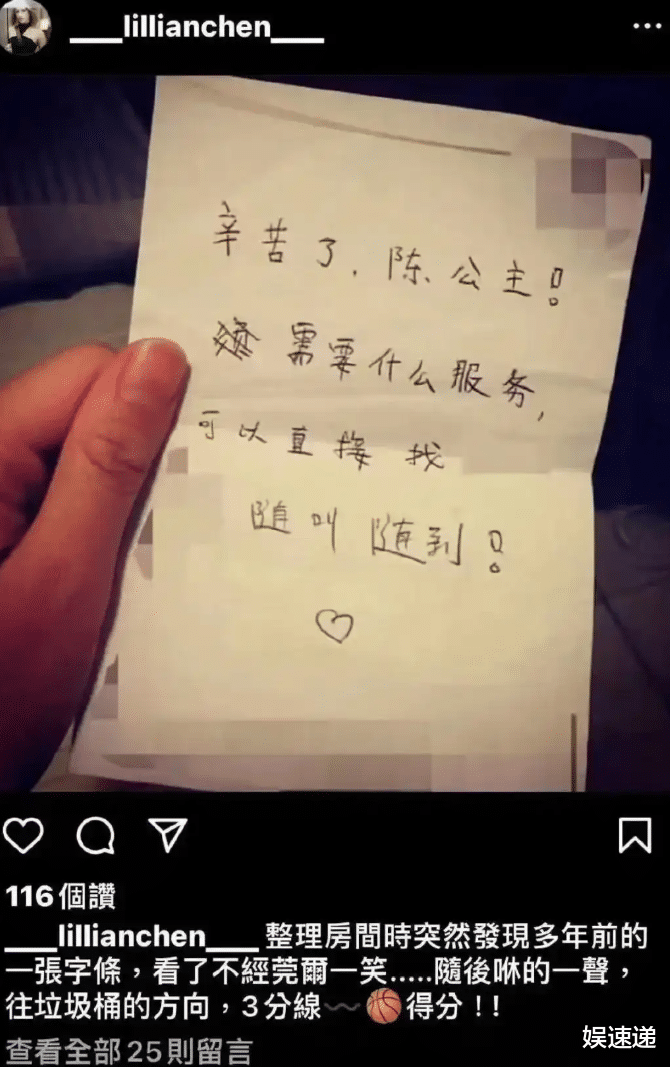 ___lillianchen___
辛苦了、陈公主!
需要什么服务,
可以直接找
随叫随到!
116個讚
___lillianchen___ 整理房間時突然發現多年前的
一張字條，看了不經莞爾一笑.....隨後咻的一聲，
往垃圾桶的方向，3分線〰️🏀得分！！
查看全部25則留言
娱速递